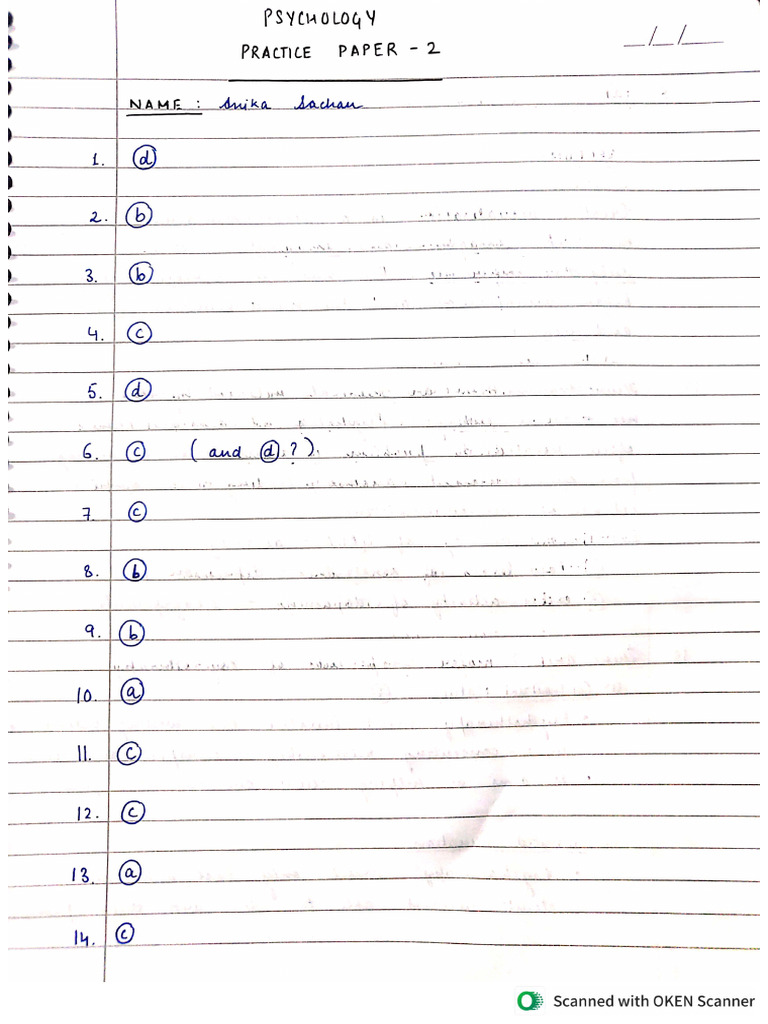 PSYCHOLOGY
PRACTICE PAPER - 2
__/__/____
NAME : Anika Sachan
1. (d)
2. (b)
3. (b)
4. (c)
5. (d)
6. (c) (and (d) ?)
7. (c)
8. (b)
9. (b)
10. (a)
11. (c)
12. (c)
13. (a)
14. (c)
Scanned with OKEN Scanner